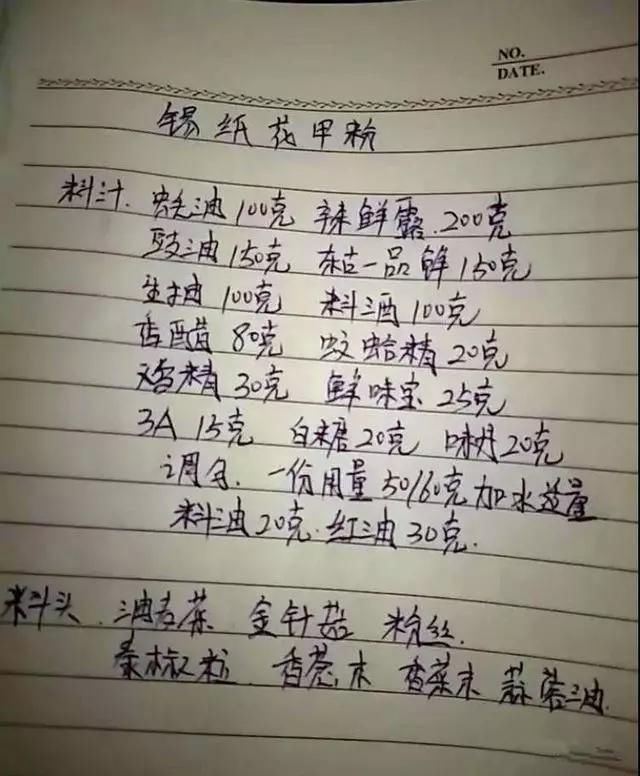 NO.
DATE.
锡纸花甲粉
料汁. 蚝油100克 辣鲜露.200克
豉油150克 东古一品鲜150克
生抽100克 料酒100克
香醋80克 蚊蛤精20克
鸡精30克 鲜味宝25克
3A 15克 白糖20克 味丹20克
调匀. 一份用量50/60克加水适量
料油20克.红油30克.
料头.油麦菜 金针菇 粉丝.
秦椒粒 香葱末 香菜末 蒜蓉油.